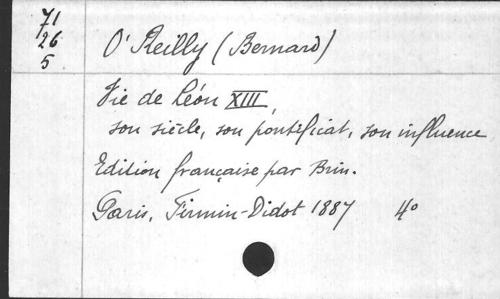 71
26
5
O'Reilly (Bernard)
Vie de Léon XIII,
son siècle, son pontificat, son influence
Edition française par Brin.
Paris, Firmin-Didot 1887 4°